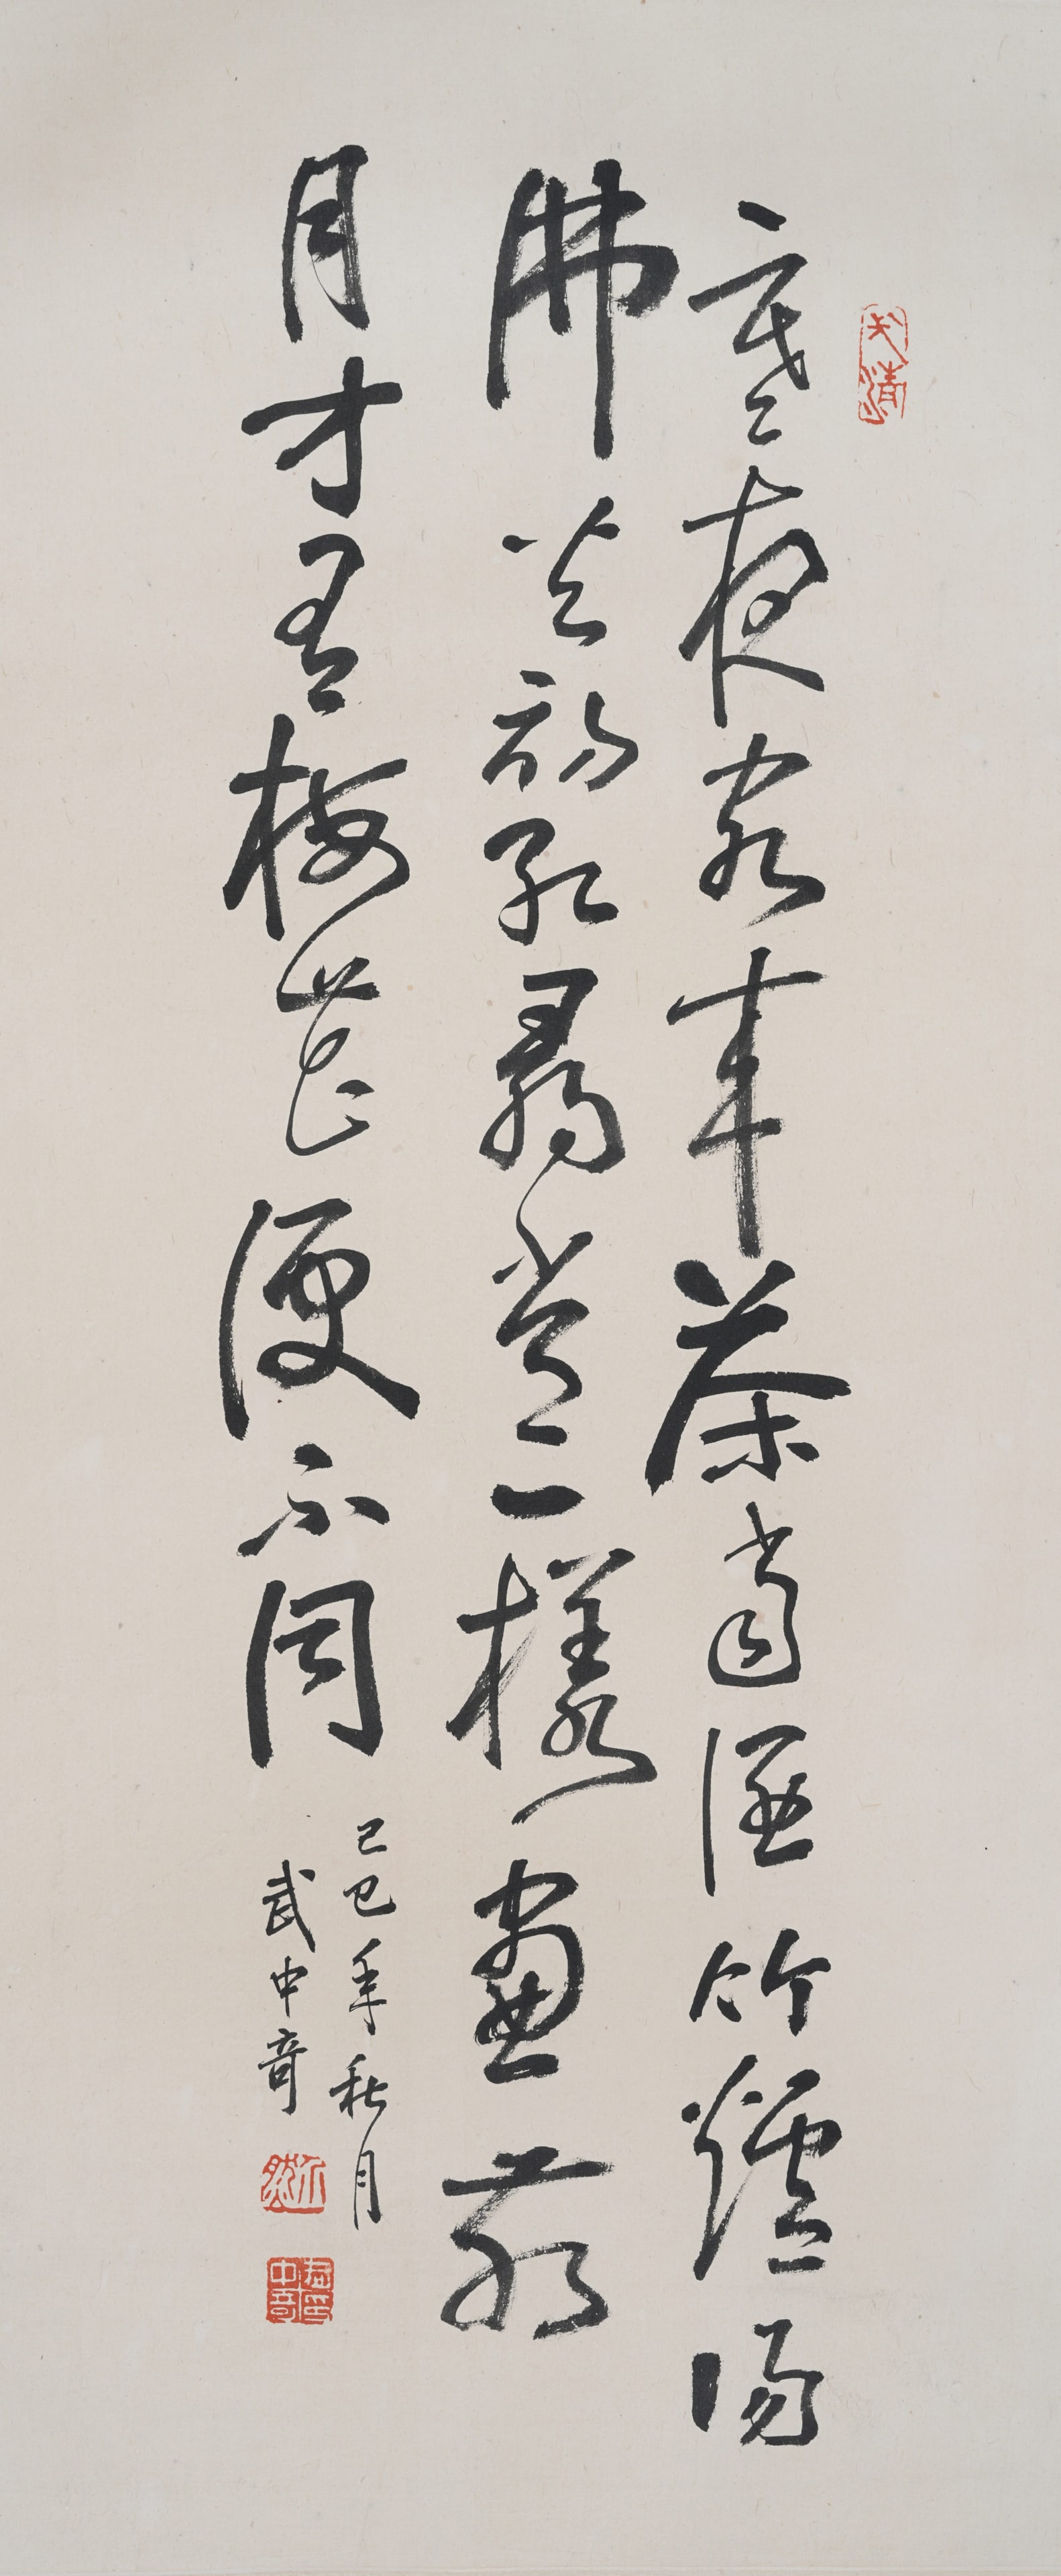 寒夜客來茶當酒竹爐湯
沸火初紅尋常一樣窗前
月才有梅花便不同
己巳年秋月
武中奇
武中奇印